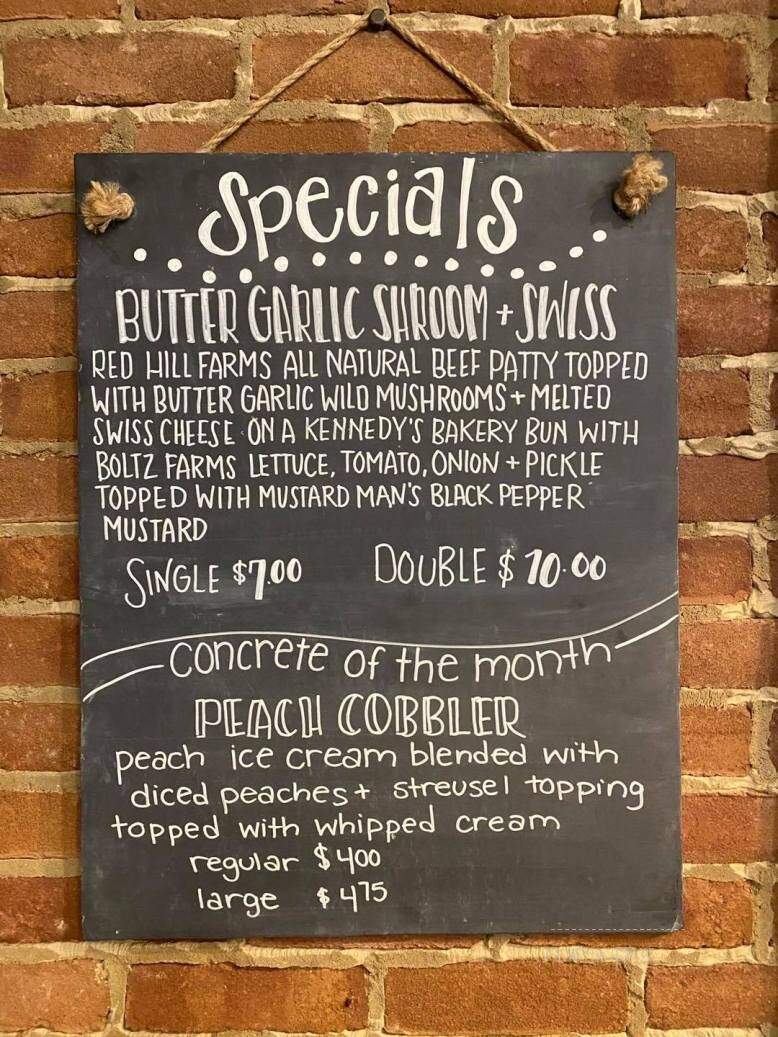 Specials
BUTTER GARLIC SHROOM + SWISS
RED HILL FARMS ALL NATURAL BEEF PATTY TOPPED
WITH BUTTER GARLIC WILD MUSHROOMS + MELTED
SWISS CHEESE ON A KENNEDY'S BAKERY BUN WITH
BOLTZ FARMS LETTUCE, TOMATO, ONION + PICKLE
TOPPED WITH MUSTARD MAN'S BLACK PEPPER
MUSTARD
SINGLE $7.00 DOUBLE $10.00
concrete of the month
PEACH COBBLER
peach ice cream blended with
diced peaches + streusel topping
topped with whipped cream
regular $4.00
large $4.75